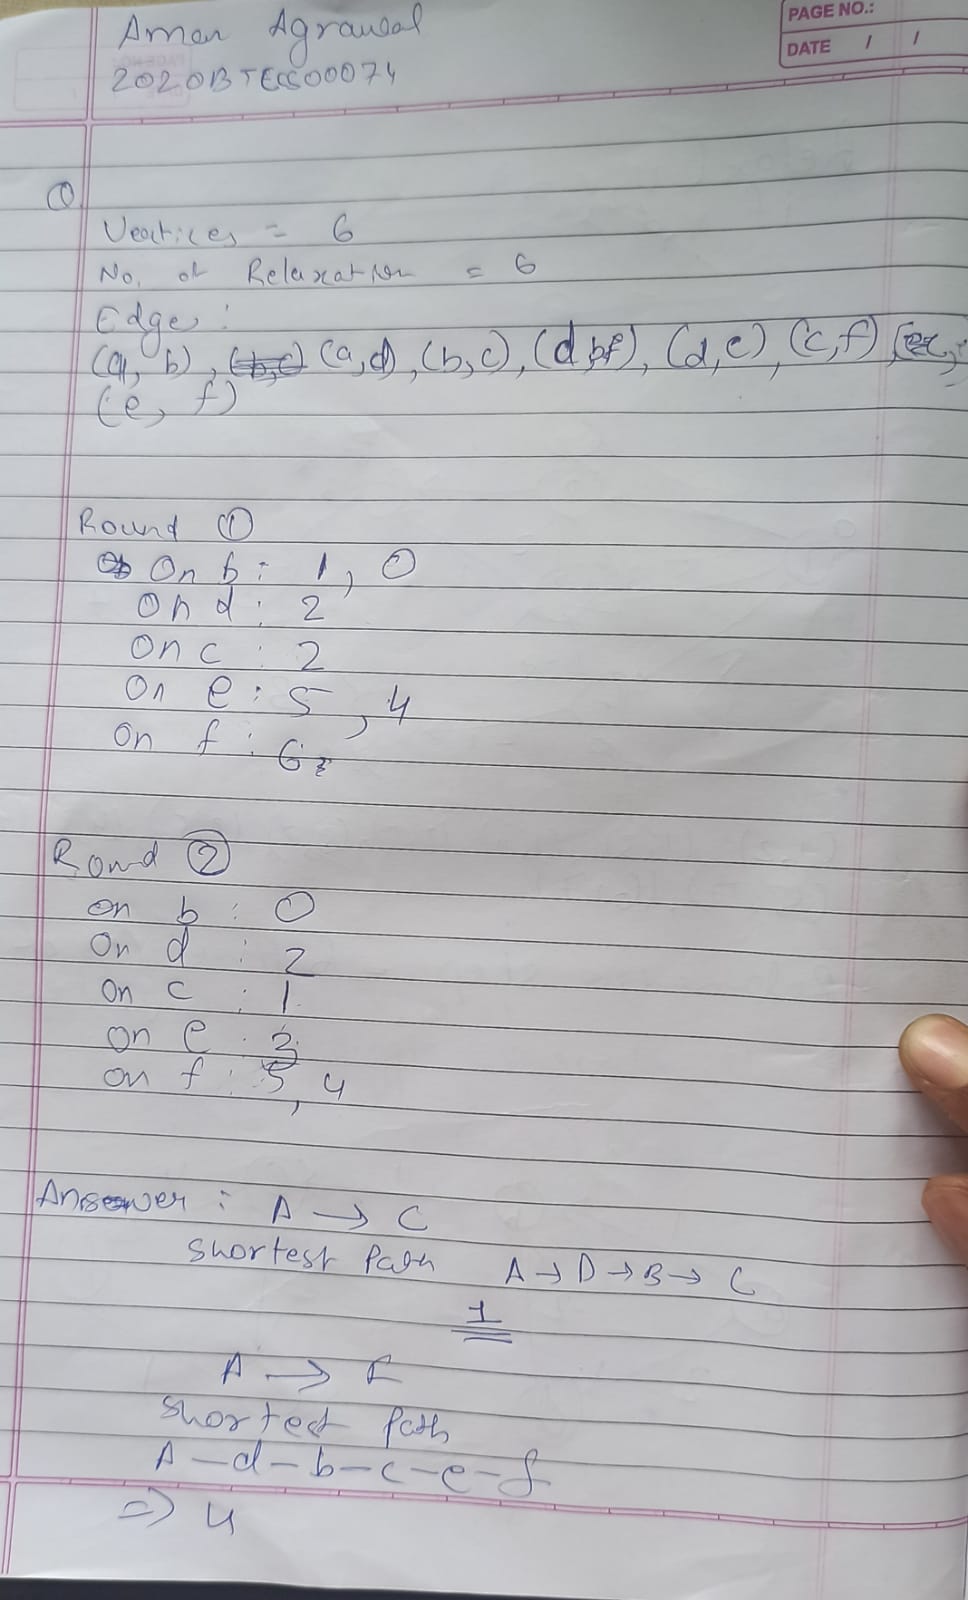 Aman Agrawal
2020BTECS00074
PAGE NO.:
DATE / /
Q
Vertices = 6
No. of Relaxation = 6
Edge :
(a, b), (a,d), (b,c), (d,b), (d,e), (c,f),
(e, f)
Round ①
On b : 1, 0
On d : 2
On c : 2
On e : 5, 4
On f : 6
Round ②
on b : 0
On d : 2
On c : 1
on e : 3
on f : 5, 4
Answer : A → C
shortest Path A → D → B → C
1
A → F
shortest path
A – d – b – c – e – f
⇒ 4